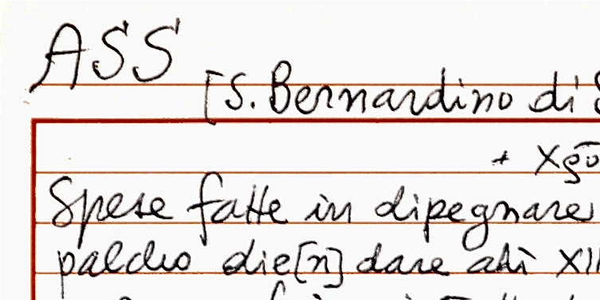 ASS
[S. Bernardino di
+ Xgō
Spese fatte in dipegnare
palcho die[n] dare adi XII